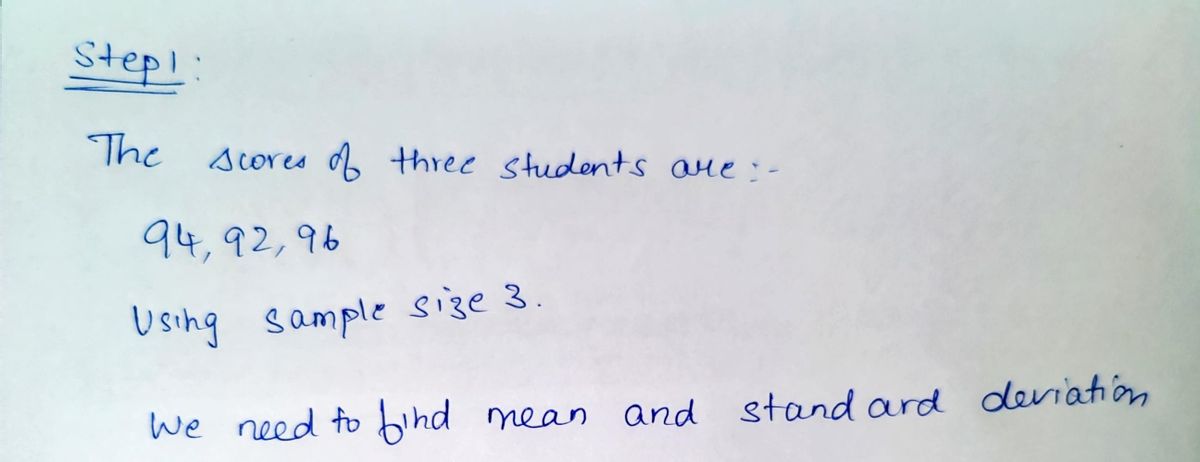 Step1:
The scores of three students are :-
94, 92, 96
Using sample size 3.
We need to find mean and standard deviation